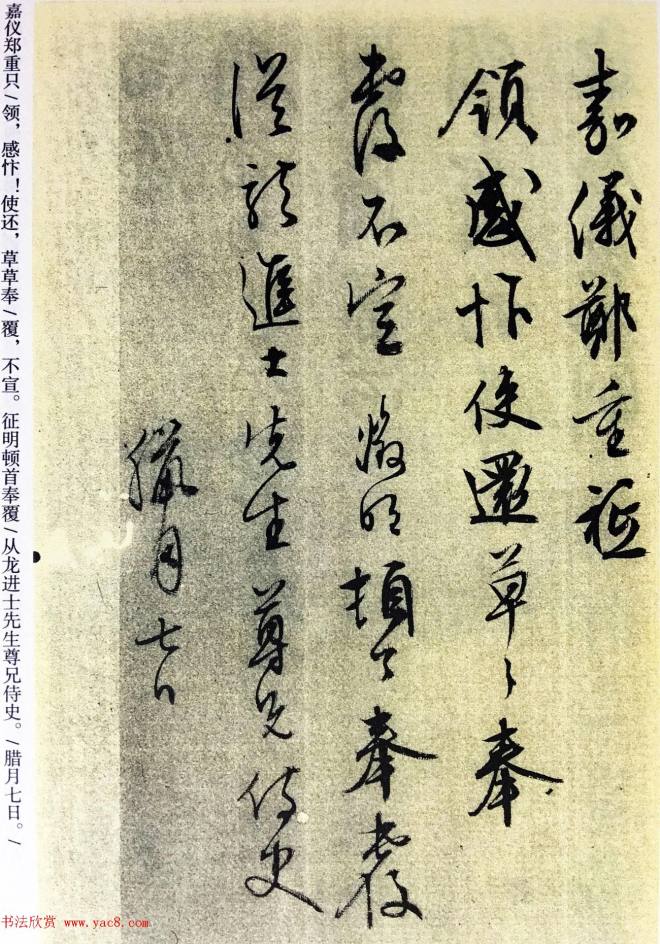 嘉儀鄭重祗
領感忭使還草々奉
覆不宣 徵明頓首奉覆
從龍進士先生尊兄侍史
臘月七日
嘉仪郑重只/领，感忭！使还，草草奉/覆，不宣。征明顿首奉覆/从龙进士先生尊兄侍史。/腊月七日。/
书法欣赏 www.yac8.com